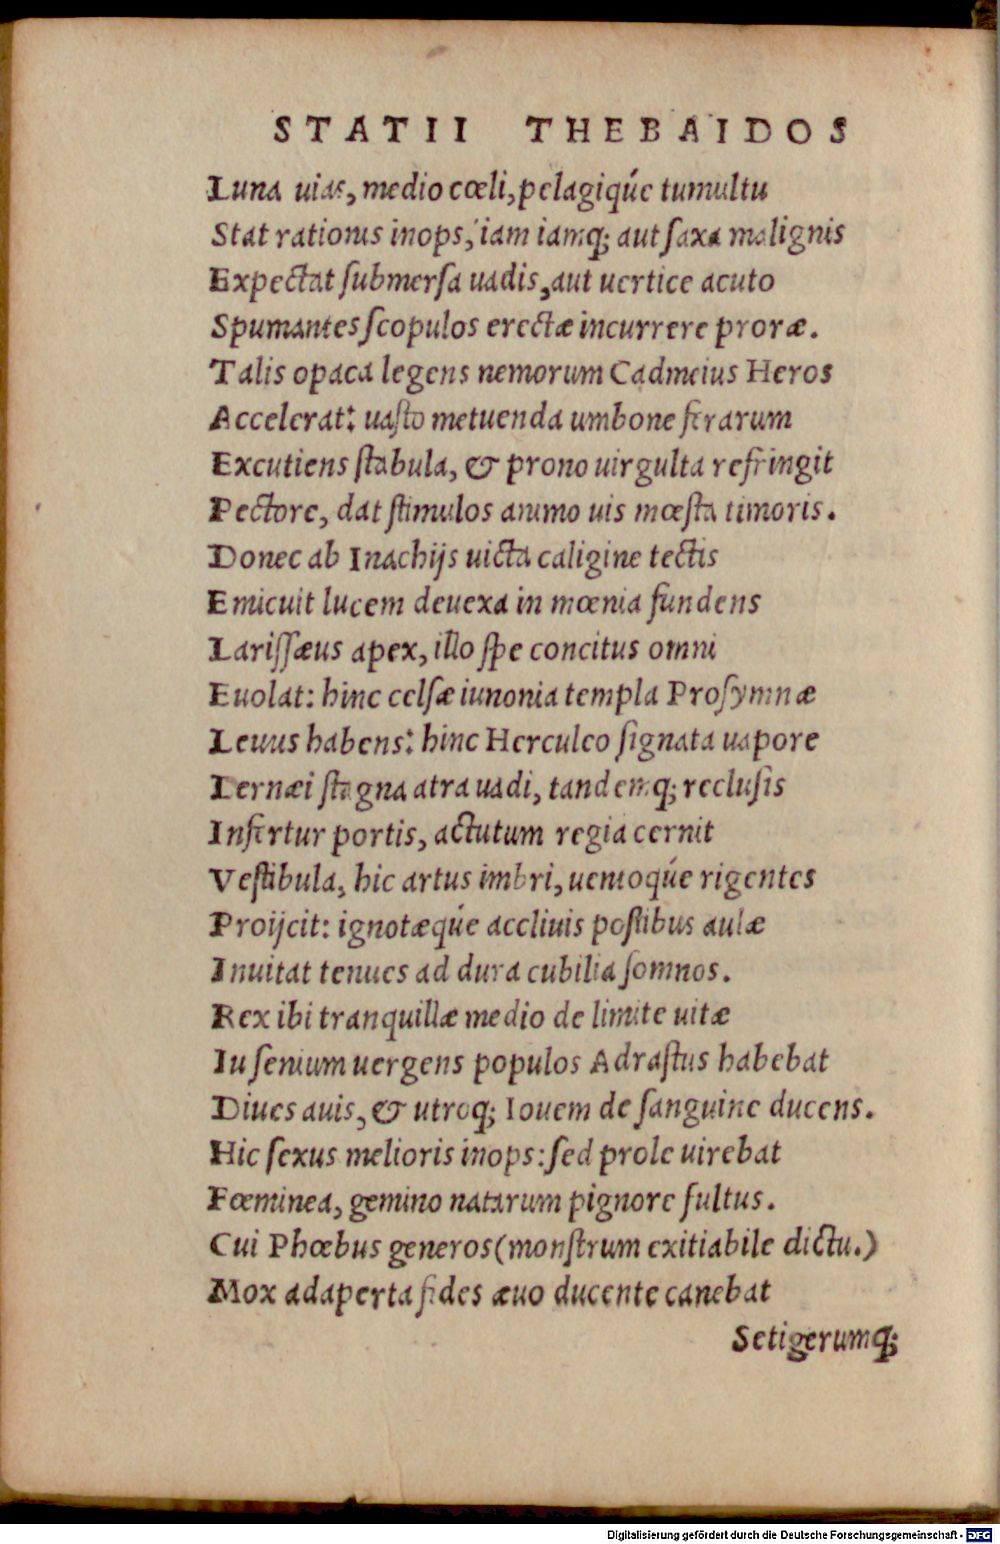 STATII THEBAIDOS
Luna uias, medio cœli, pelagiqúe tumultu
Stat rationis inops, iam iamq; aut saxa malignis
Expectat submersa uadis, aut uertice acuto
Spumantes scopulos erectæ incurrere proræ.
Talis opaca legens nemorum Cadmeius Heros
Accelerat: uasto metuenda umbone ferarum
Excutiens stabula, & prono uirgulta refringit
Pectore, dat stimulos animo uis mœsta timoris.
Donec ab Inachijs uicta caligine tectis
Emicuit lucem deuexa in mœnia fundens
Larissæus apex, illo spe concitus omni
Euolat: hinc celsæ iunonia templa Prosymnæ
Leuus habens: hinc Herculeo signata uapore
Lernæi stagna atra uadi, tandemq; reclusis
Infertur portis, actutum regia cernit
Vestibula, hic artus imbri, uentoqúe rigentes
Proijcit: ignotæqúe accliuis postibus aulæ
Inuitat tenues ad dura cubilia somnos.
Rex ibi tranquillæ medio de limite uitæ
Iu senium uergens populos Adrastus habebat
Diues auis, & utroq; Iouem de sanguine ducens.
Hic sexus melioris inops: sed prole uirebat
Fœminea, gemino natarum pignore fultus.
Cui Phœbus generos (monstrum exitiabile dictu.)
Mox adaperta fides æuo ducente canebat
Setigerumq;
Digitalisierung gefördert durch die Deutsche Forschungsgemeinschaft - DFG